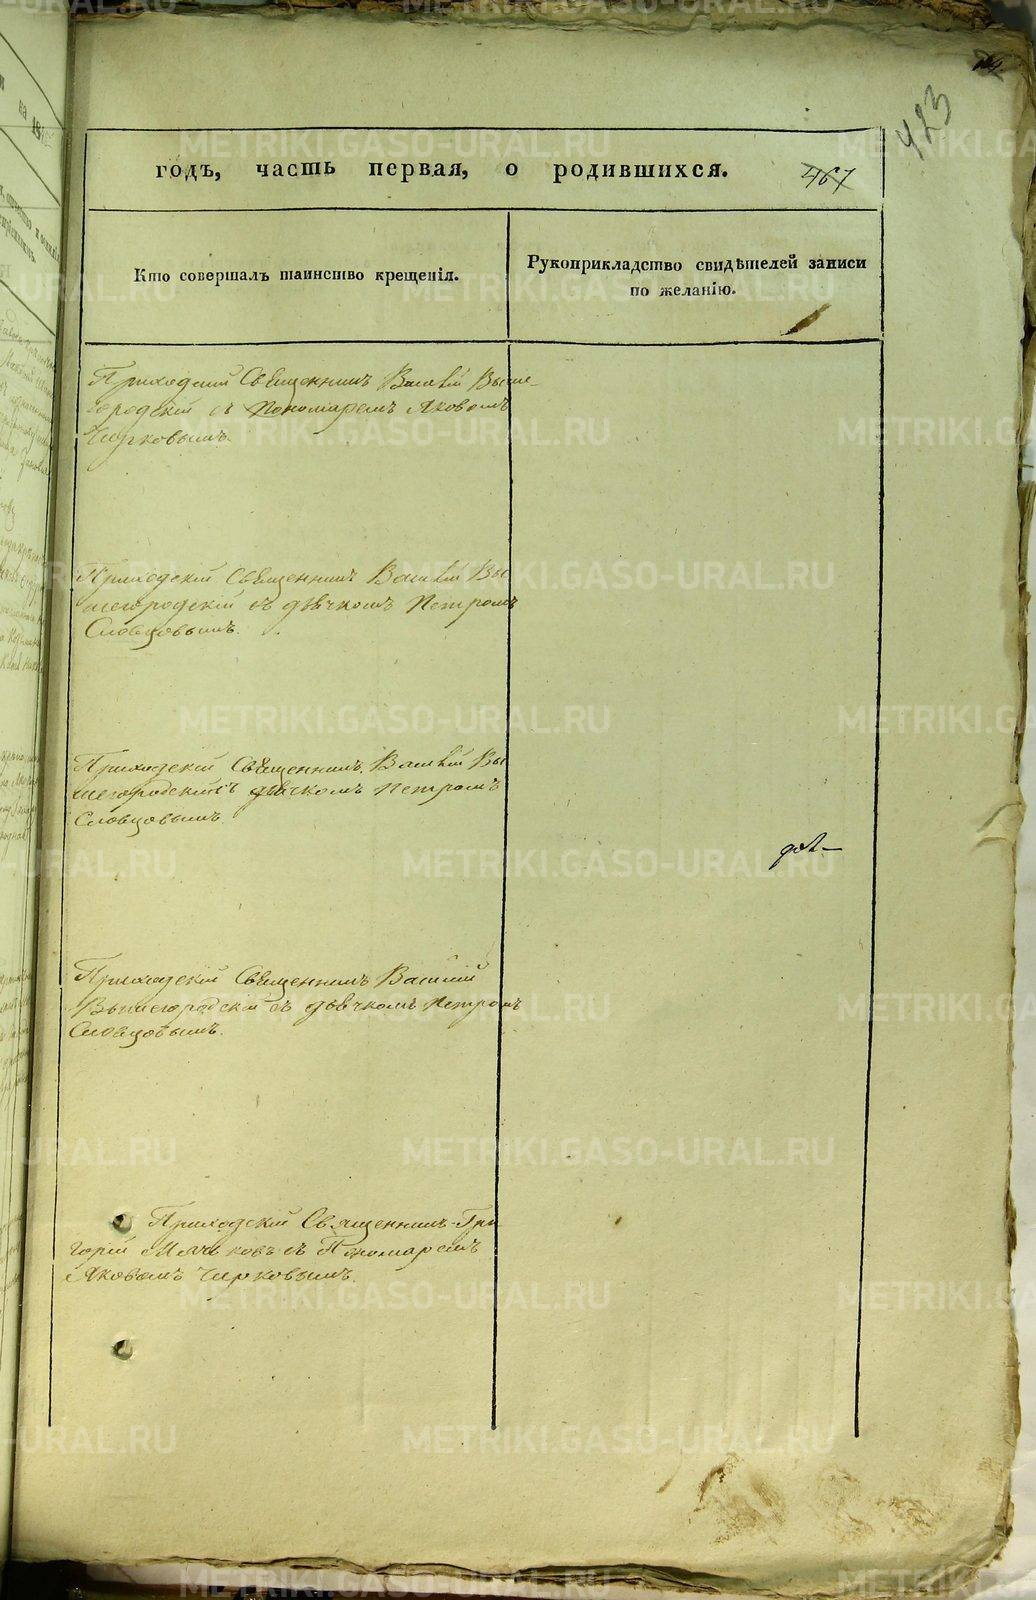 423
годъ, часть первая, о родившихся. 467
Кто совершалъ таинство крещенія.
Рукоприкладство свидѣтелей записи
по желанію.
Приходскій Священникъ Василій Выше-
городскій съ Пономаремъ Яковомъ
Чирковымъ.
Приходскій Священникъ Василій Вы
шегородскій съ дьячкомъ Петромъ
Словцовымъ.
Приходскій Священникъ Василій Вы
шегородскій съ дьячкомъ Петромъ
Словцовымъ.
Приходскій Священникъ Василій
Вышегородскій съ дьячкомъ Петромъ
Словцовымъ.
Приходскій Священникъ Гри
горій съ Пономаремъ
Яковомъ Чирковымъ.
METRIKI.GASO-URAL.RU